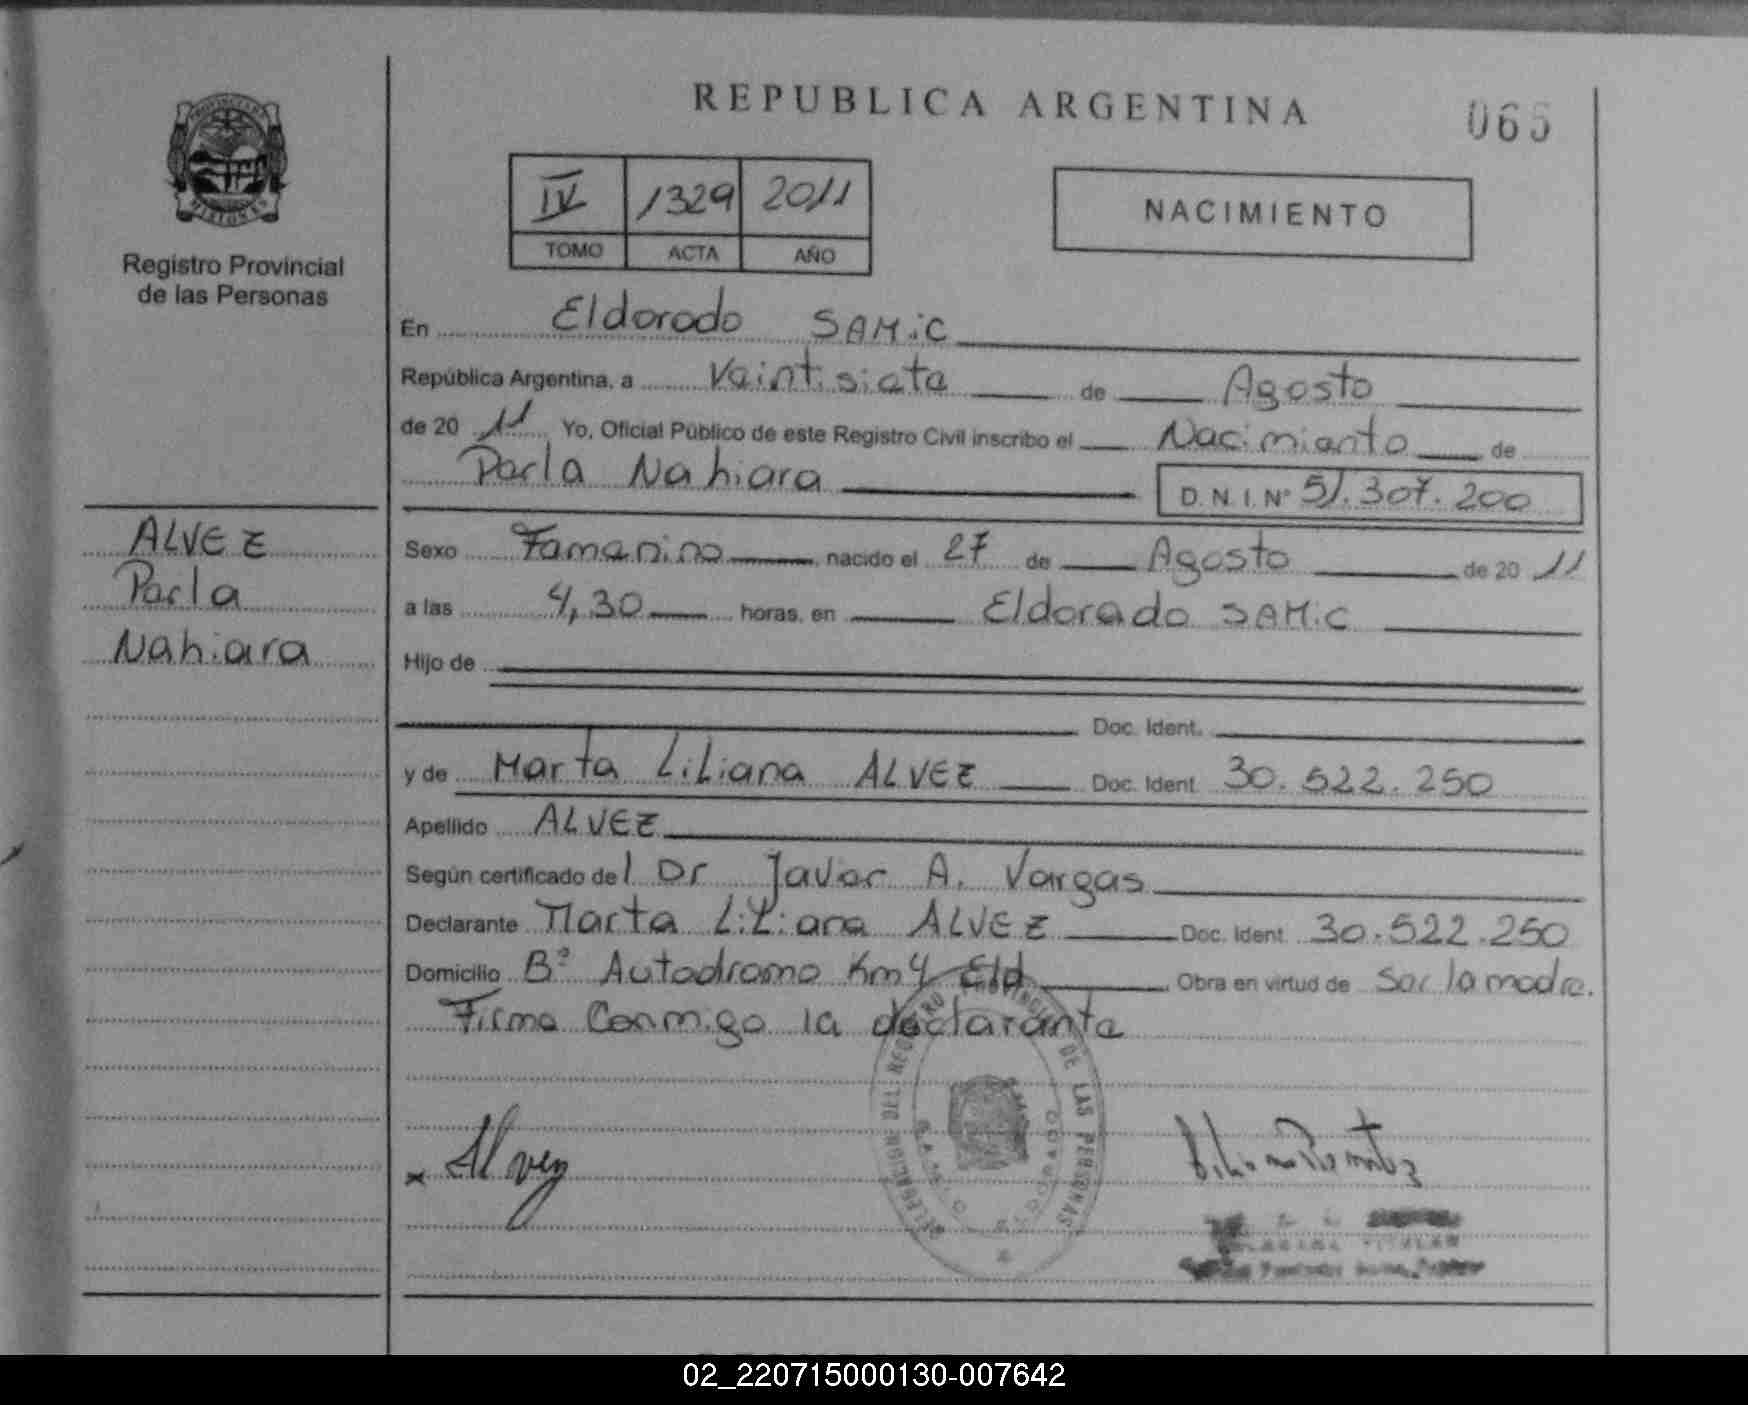 REPUBLICA ARGENTINA
065
PROVINCIA DE
MISIONES
Registro Provincial
de las Personas
IV 1329 2011
TOMO ACTA AÑO
NACIMIENTO
En Eldorado SAMiC
República Argentina, a Veintisiete de Agosto
de 20 11 Yo, Oficial Público de este Registro Civil inscribo el Nacimiento de
Perla Nahiara D. N. I. Nº 51.307.200
ALVEZ
Perla
Nahiara
Sexo Femenino nacido el 27 de Agosto de 20 11
a las 4,30 horas, en Eldorado SAMiC
Hijo de
Doc. Ident.
y de Marta Liliana ALVEZ Doc. Ident. 30.522.250
Apellido ALVEZ
Según certificado del Dr Javer A. Vargas
Declarante Marta Liliana ALVEZ Doc. Ident. 30.522.250
Domicilio Bº Autodromo Km 4 Eld Obra en virtud de Ser la madre.
Firma Conmigo la declarante
Alvez
DELEGACION DEL REGISTRO PROVINCIAL DE LAS PERSONAS
ELDORADO
TITULAR
02_220715000130-007642